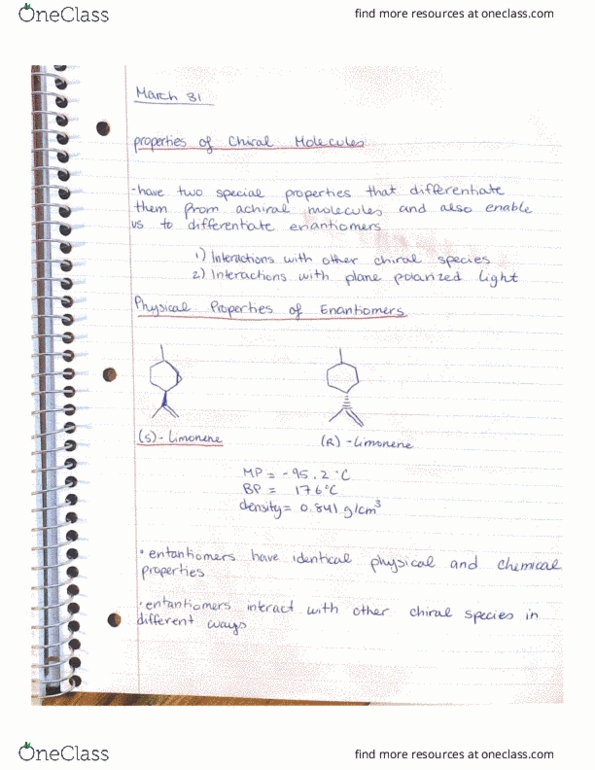 OneClass
find more resources at oneclass.com
March 31
properties of Chiral Molecules
-have two special properties that differentiate
them from achiral molecules and also enable
us to differentiate enantiomers
1) Interactions with other chiral species
2) Interactions with plane polarized light
Physical Properties of Enantiomers
(S)-Limonene
(R)-Limonene
MP = -95.2°C
BP = 176°C
density = 0.841 g/cm³
• entantiomers have identical physical and chemical
properties
• entantiomers interact with other chiral species in
different ways
OneClass
find more resources at oneclass.com